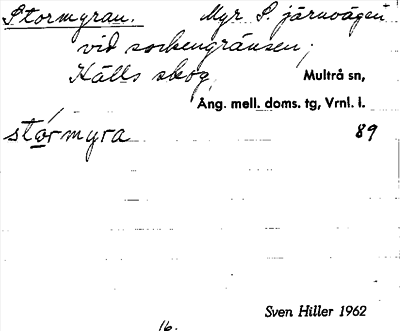 Stormyran. Myr S. järnvägen
vid sockengränsen;
Hälls skog
Multrå sn,
Ång. mell. doms. tg, Vrnl. l.
stórmyra 89
Sven Hiller 1962
16.